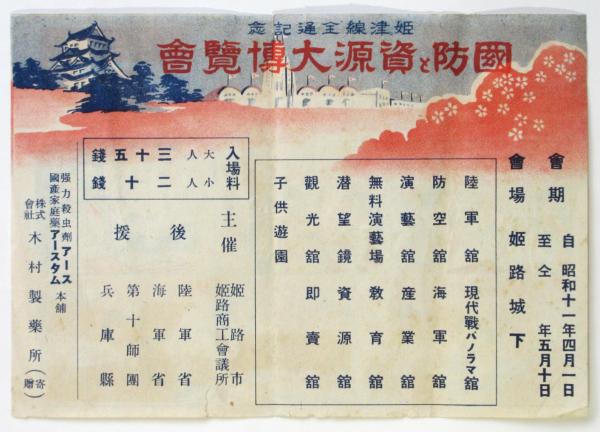 姫津線全通記念
國防と資源大博覽會
會期 自 昭和十一年四月一日
至 仝 年五月十日
會場 姫路城下
陸軍舘 現代戰パノラマ舘
防空舘 海軍舘
演藝舘 産業舘
無料演藝場 教育舘
潜望鏡 資源舘
觀光舘 即賣舘
子供遊園
入場料
大人 三十五錢
小人 二十錢
主催
姫路市
姫路商工會議所
後援
陸軍省
海軍省
第十師團
兵庫縣
强力殺虫劑 アース
國産家庭藥 アースタム 本舗
株式會社 木村製藥所 (寄贈)